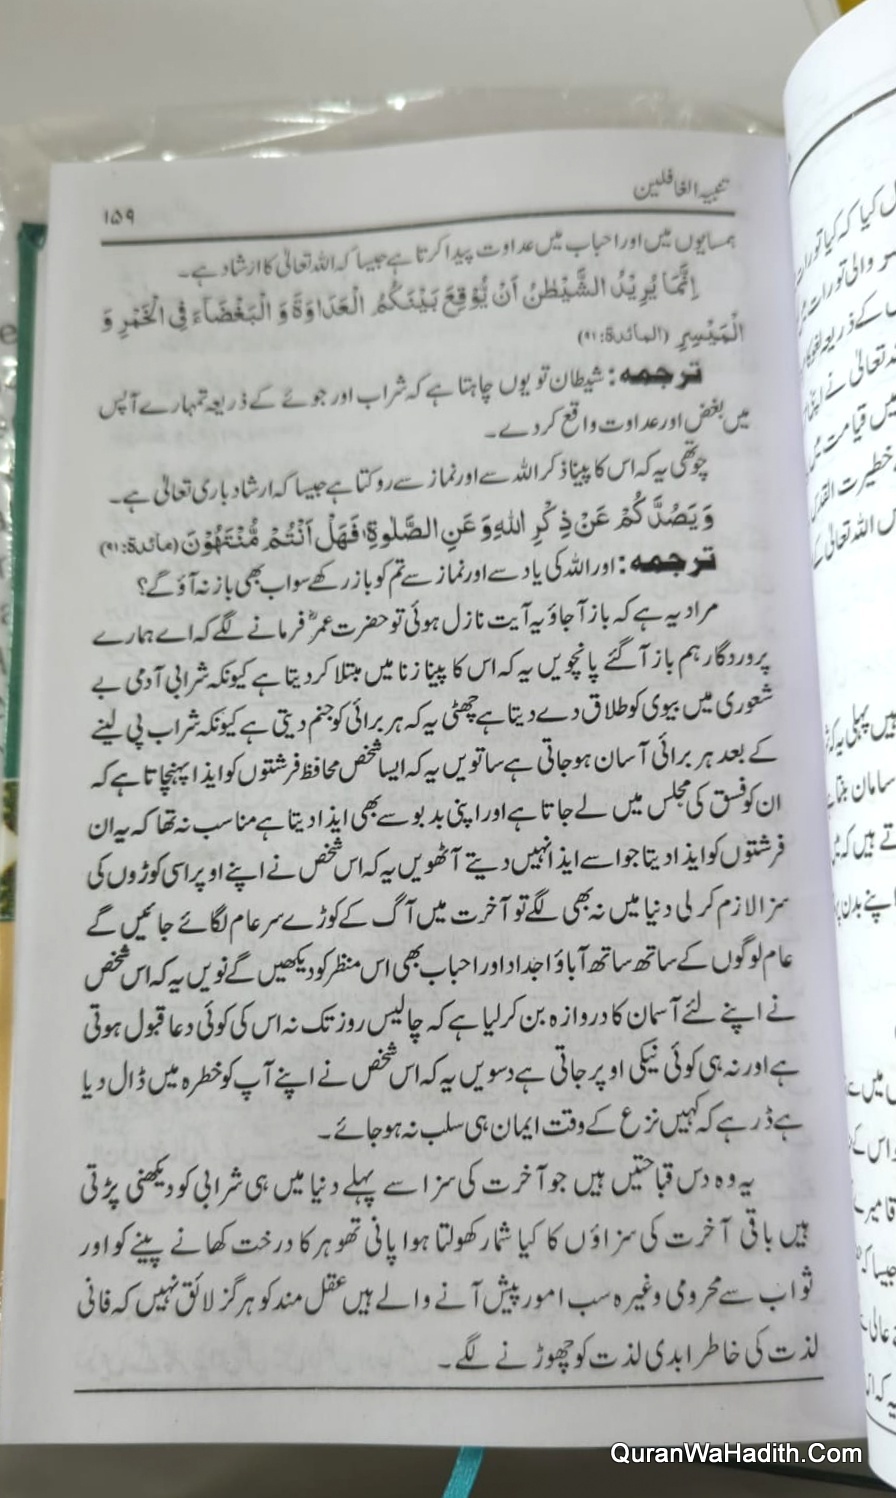 تنبیہ الغافلین
۱۵۹
ہمسایوں میں اور احباب میں عداوت پیدا کرتا ہے جیسا کہ اللہ تعالیٰ کا ارشاد ہے۔
اِنَّمَا يُرِيْدُ الشَّيْطٰنُ اَنْ يُّوْقِعَ بَيْنَكُمُ الْعَدَاوَةَ وَ الْبَغْضَآءَ فِى الْخَمْرِ وَ
الْمَيْسِرِ (المائدة:۹۱)
ترجمہ: شیطان تو یوں چاہتا ہے کہ شراب اور جوئے کے ذریعہ تمہارے آپس
میں بغض اور عداوت واقع کردے۔
چوتھی یہ کہ اس کا پینا ذکر اللہ سے اور نماز سے روکتا ہے جیسا کہ ارشاد باری تعالیٰ ہے۔
وَ يَصُدَّكُمْ عَنْ ذِكْرِ اللهِ وَ عَنِ الصَّلٰوةِ، فَهَلْ اَنْتُمْ مُّنْتَهُوْنَ (مائدة:۹۱)
ترجمہ: اور اللہ کی یاد سے اور نماز سے تم کو باز رکھے سو اب بھی باز نہ آؤ گے؟
مراد یہ ہے کہ باز آجاؤ یہ آیت نازل ہوئی تو حضرت عمرؓ فرمانے لگے کہ اے ہمارے
پروردگار ہم باز آگئے پانچویں یہ کہ اس کا پینا زنا میں مبتلا کردیتا ہے کیونکہ شرابی آدمی بے
شعوری میں بیوی کو طلاق دے دیتا ہے چھٹی یہ کہ ہر برائی کو جنم دیتی ہے کیونکہ شراب پی لینے
کے بعد ہر برائی آسان ہو جاتی ہے ساتویں یہ کہ ایسا شخص محافظ فرشتوں کو ایذا پہنچاتا ہے کہ
ان کو فسق کی مجلس میں لے جاتا ہے اور اپنی بدبو سے بھی ایذا دیتا ہے مناسب نہ تھا کہ یہ ان
فرشتوں کو ایذا دیتا جو اسے ایذا نہیں دیتے آٹھویں یہ کہ اس شخص نے اپنے اوپر اسی کوڑوں کی
سزا لازم کرلی دنیا میں نہ بھی لگے تو آخرت میں آگ کے کوڑے سرعام لگائے جائیں گے
عام لوگوں کے ساتھ ساتھ آباؤ اجداد اور احباب بھی اس منظر کو دیکھیں گے نویں یہ کہ اس شخص
نے اپنے لئے آسمان کا دروازہ بن کر لیا ہے کہ چالیس روز تک نہ اس کی کوئی دعا قبول ہوتی
ہے اور نہ ہی کوئی نیکی اوپر جاتی ہے دسویں یہ کہ اس شخص نے اپنے آپ کو خطرہ میں ڈال دیا
ہے ڈر ہے کہ کہیں نزع کے وقت ایمان ہی سلب نہ ہو جائے۔
یہ وہ دس قباحتیں ہیں جو آخرت کی سزا سے پہلے دنیا میں ہی شرابی کو دیکھنی پڑتی
ہیں باقی آخرت کی سزاؤں کا کیا شمار کھولتا ہوا پانی تھوہر کا درخت کھانے پینے کو اور
ثواب سے محرومی وغیرہ سب امور پیش آنے والے ہیں عقل مند کو ہرگز لائق نہیں کہ فانی
لذت کی خاطر ابدی لذت کو چھوڑنے لگے۔
QuranWaHadith.Com